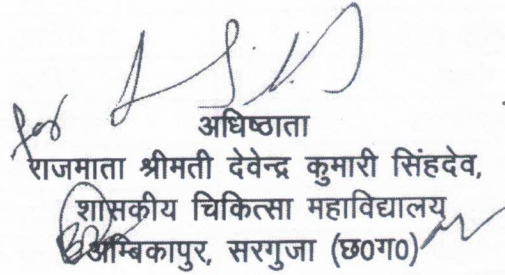 for
अधिष्ठाता
राजमाता श्रीमती देवेन्द्र कुमारी सिंहदेव,
शासकीय चिकित्सा महाविद्यालय
अम्बिकापुर, सरगुजा (छ0ग0)